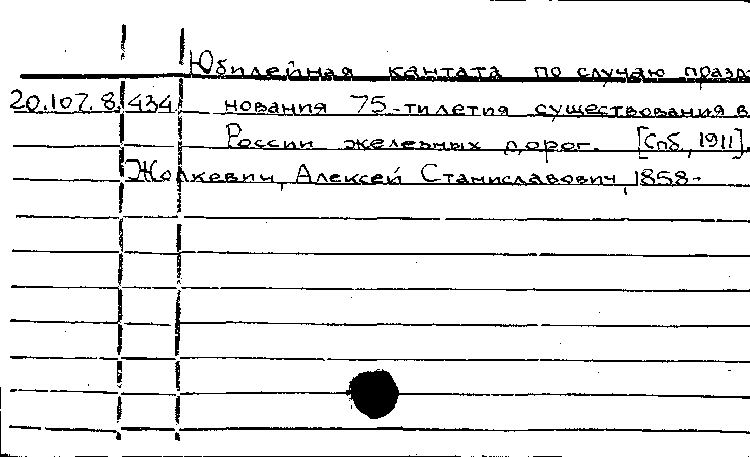 Юбилейная кантата по случаю празд-
20.107.8.434 нования 75-тилетия существования в
России железных дорог. [Спб, 1911].
Жолкевич, Алексей Станиславович, 1858-